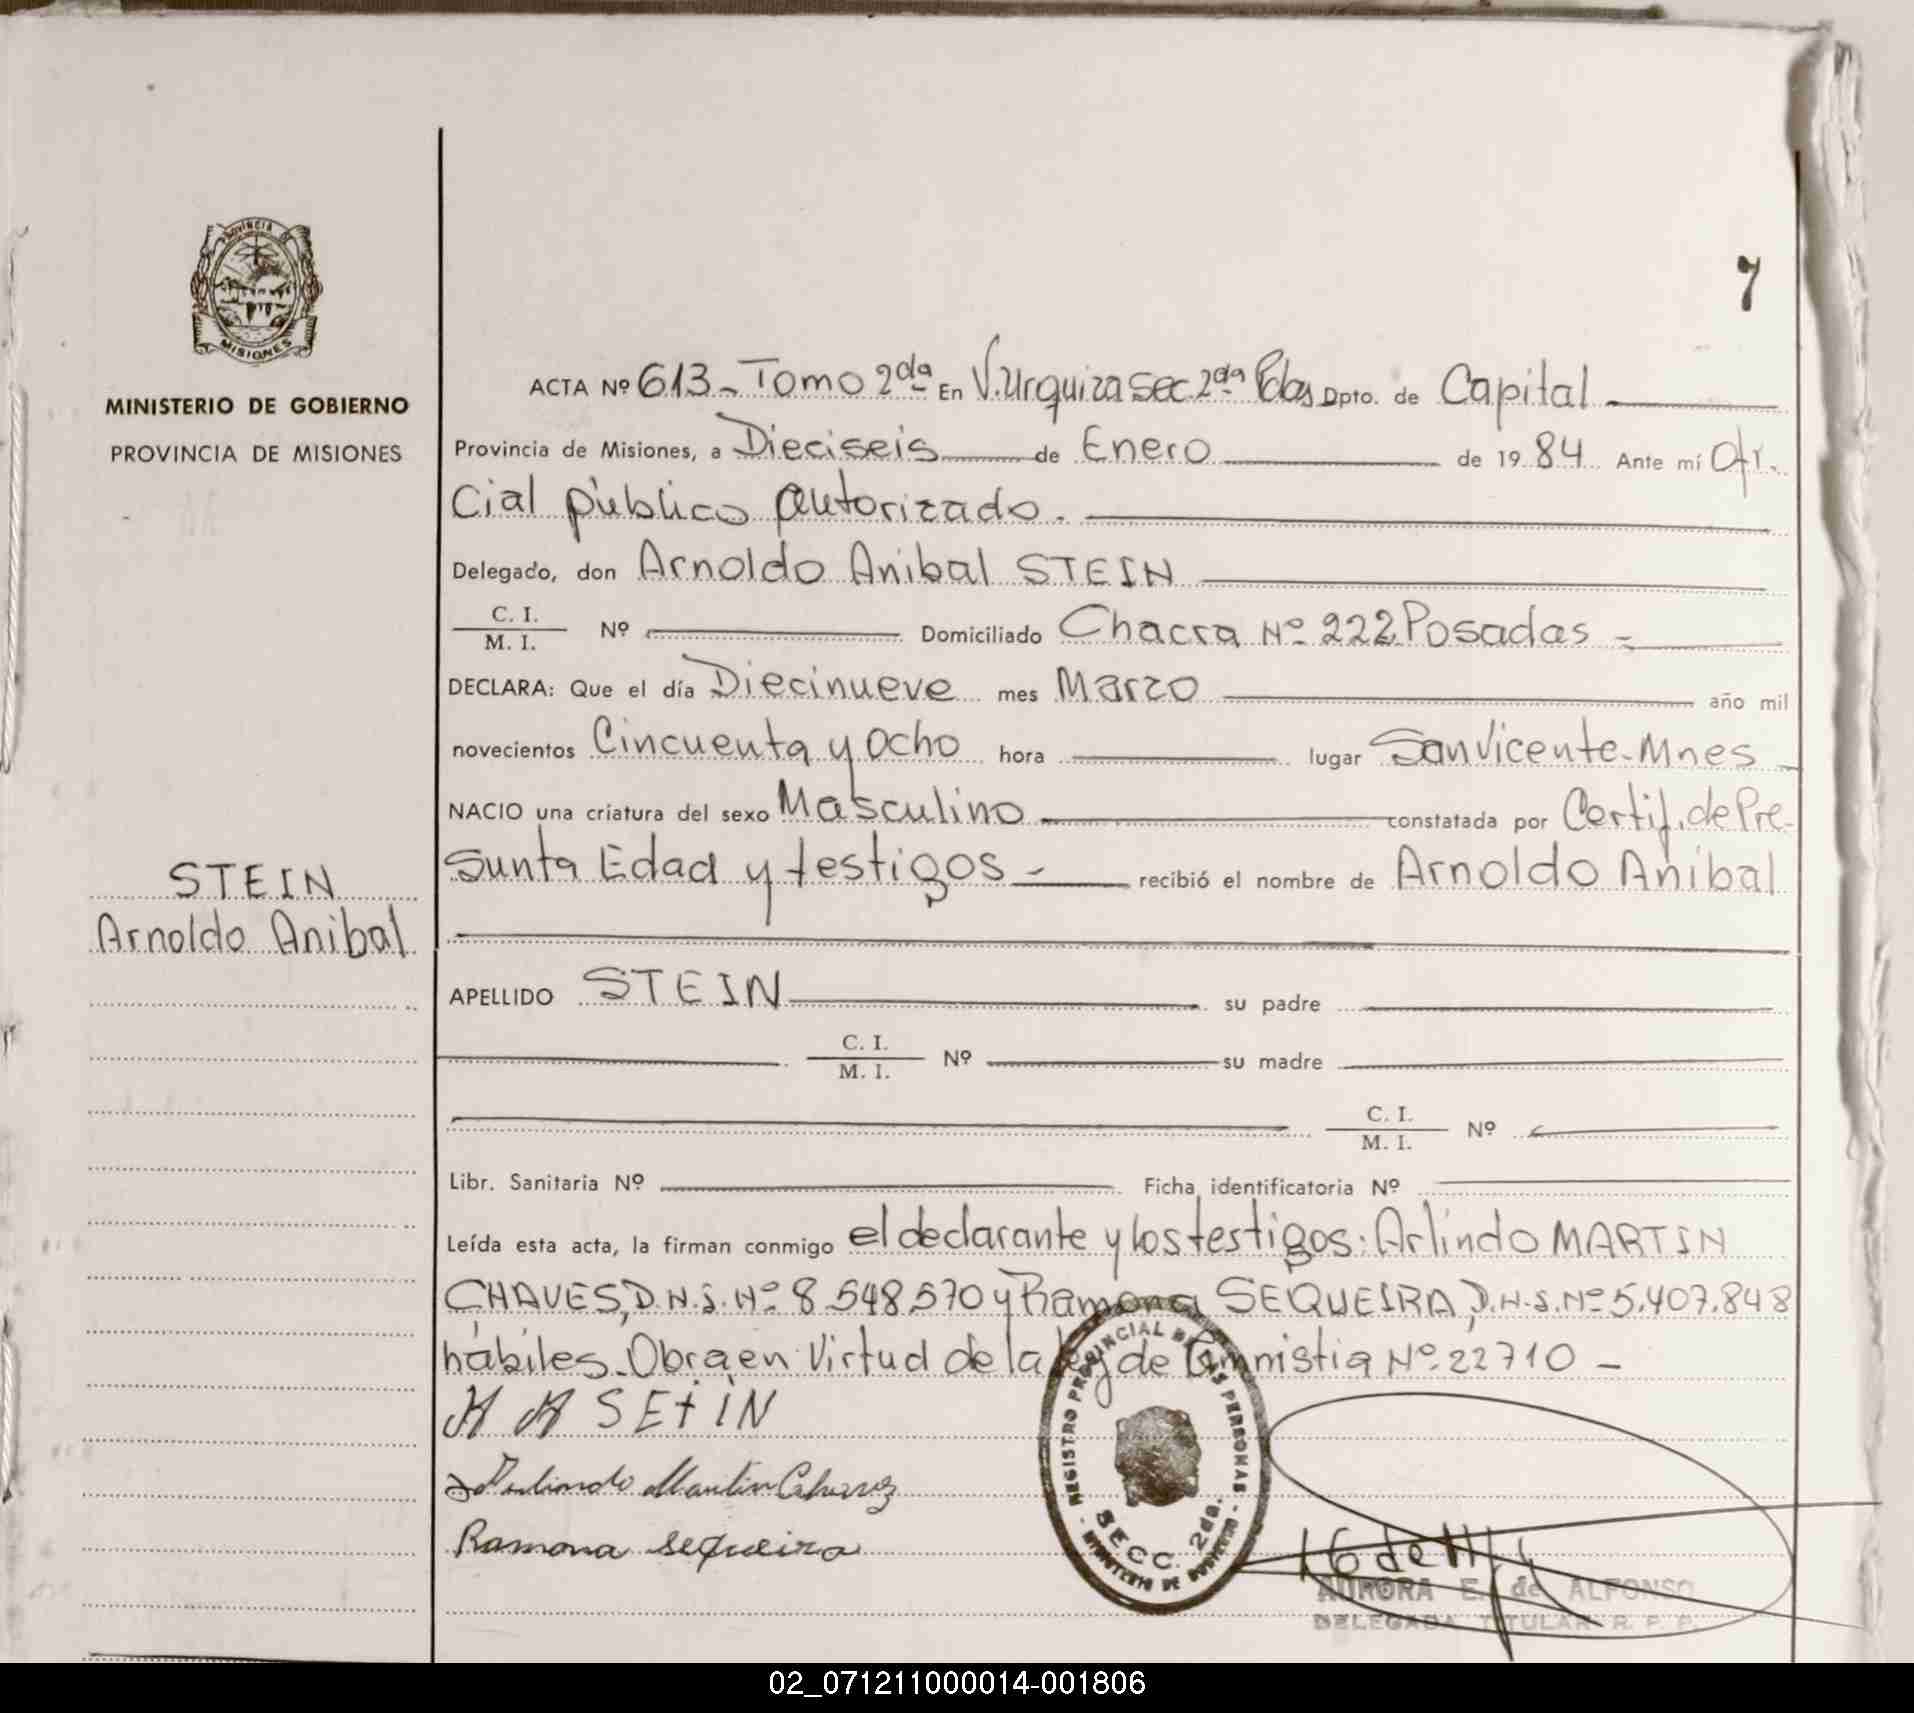 7
PROVINCIA DE
MISIONES
MINISTERIO DE GOBIERNO
PROVINCIA DE MISIONES
STEIN
Arnoldo Anibal
ACTA Nº 613- Tomo 2da En V. Urquiza Sec. 2da Pdas Dpto. de Capital
Provincia de Misiones, a Dieciseis de Enero de 19 84 Ante mí Ofi-
cial público autorizado.
Delegado, don Arnoldo Anibal STEIN
C. I.
M. I. Nº Domiciliado Chacra Nº 222 Posadas -
DECLARA: Que el día Diecinueve mes Marzo año mil
novecientos Cincuenta y ocho hora lugar San Vicente-Mnes
NACIO una criatura del sexo Masculino constatada por Certif. de Pre-
sunta Edad y testigos - recibió el nombre de Arnoldo Anibal
APELLIDO STEIN su padre
C. I.
M. I. Nº su madre
C. I.
M. I. Nº
Libr. Sanitaria Nº Ficha identificatoria Nº
Leída esta acta, la firman conmigo el declarante y los testigos: Arlindo MARTIN
CHAVES, D.N.I. Nº 8.548.570 y Ramona SEQUEIRA, D.N.I. Nº 5.407.848
hábiles. Obra en Virtud de la ley de Amnistia Nº 22710 -
A A SEtIN
Arlindo Martin Chavez
Ramona sequeira
REGISTRO PROVINCIAL DE LAS PERSONAS
SECC. 2da.
- MINISTERIO DE GOBIERNO -
AURORA E. de ALFONSO
DELEGADA TITULAR R. P. P.
02_071211000014-001806